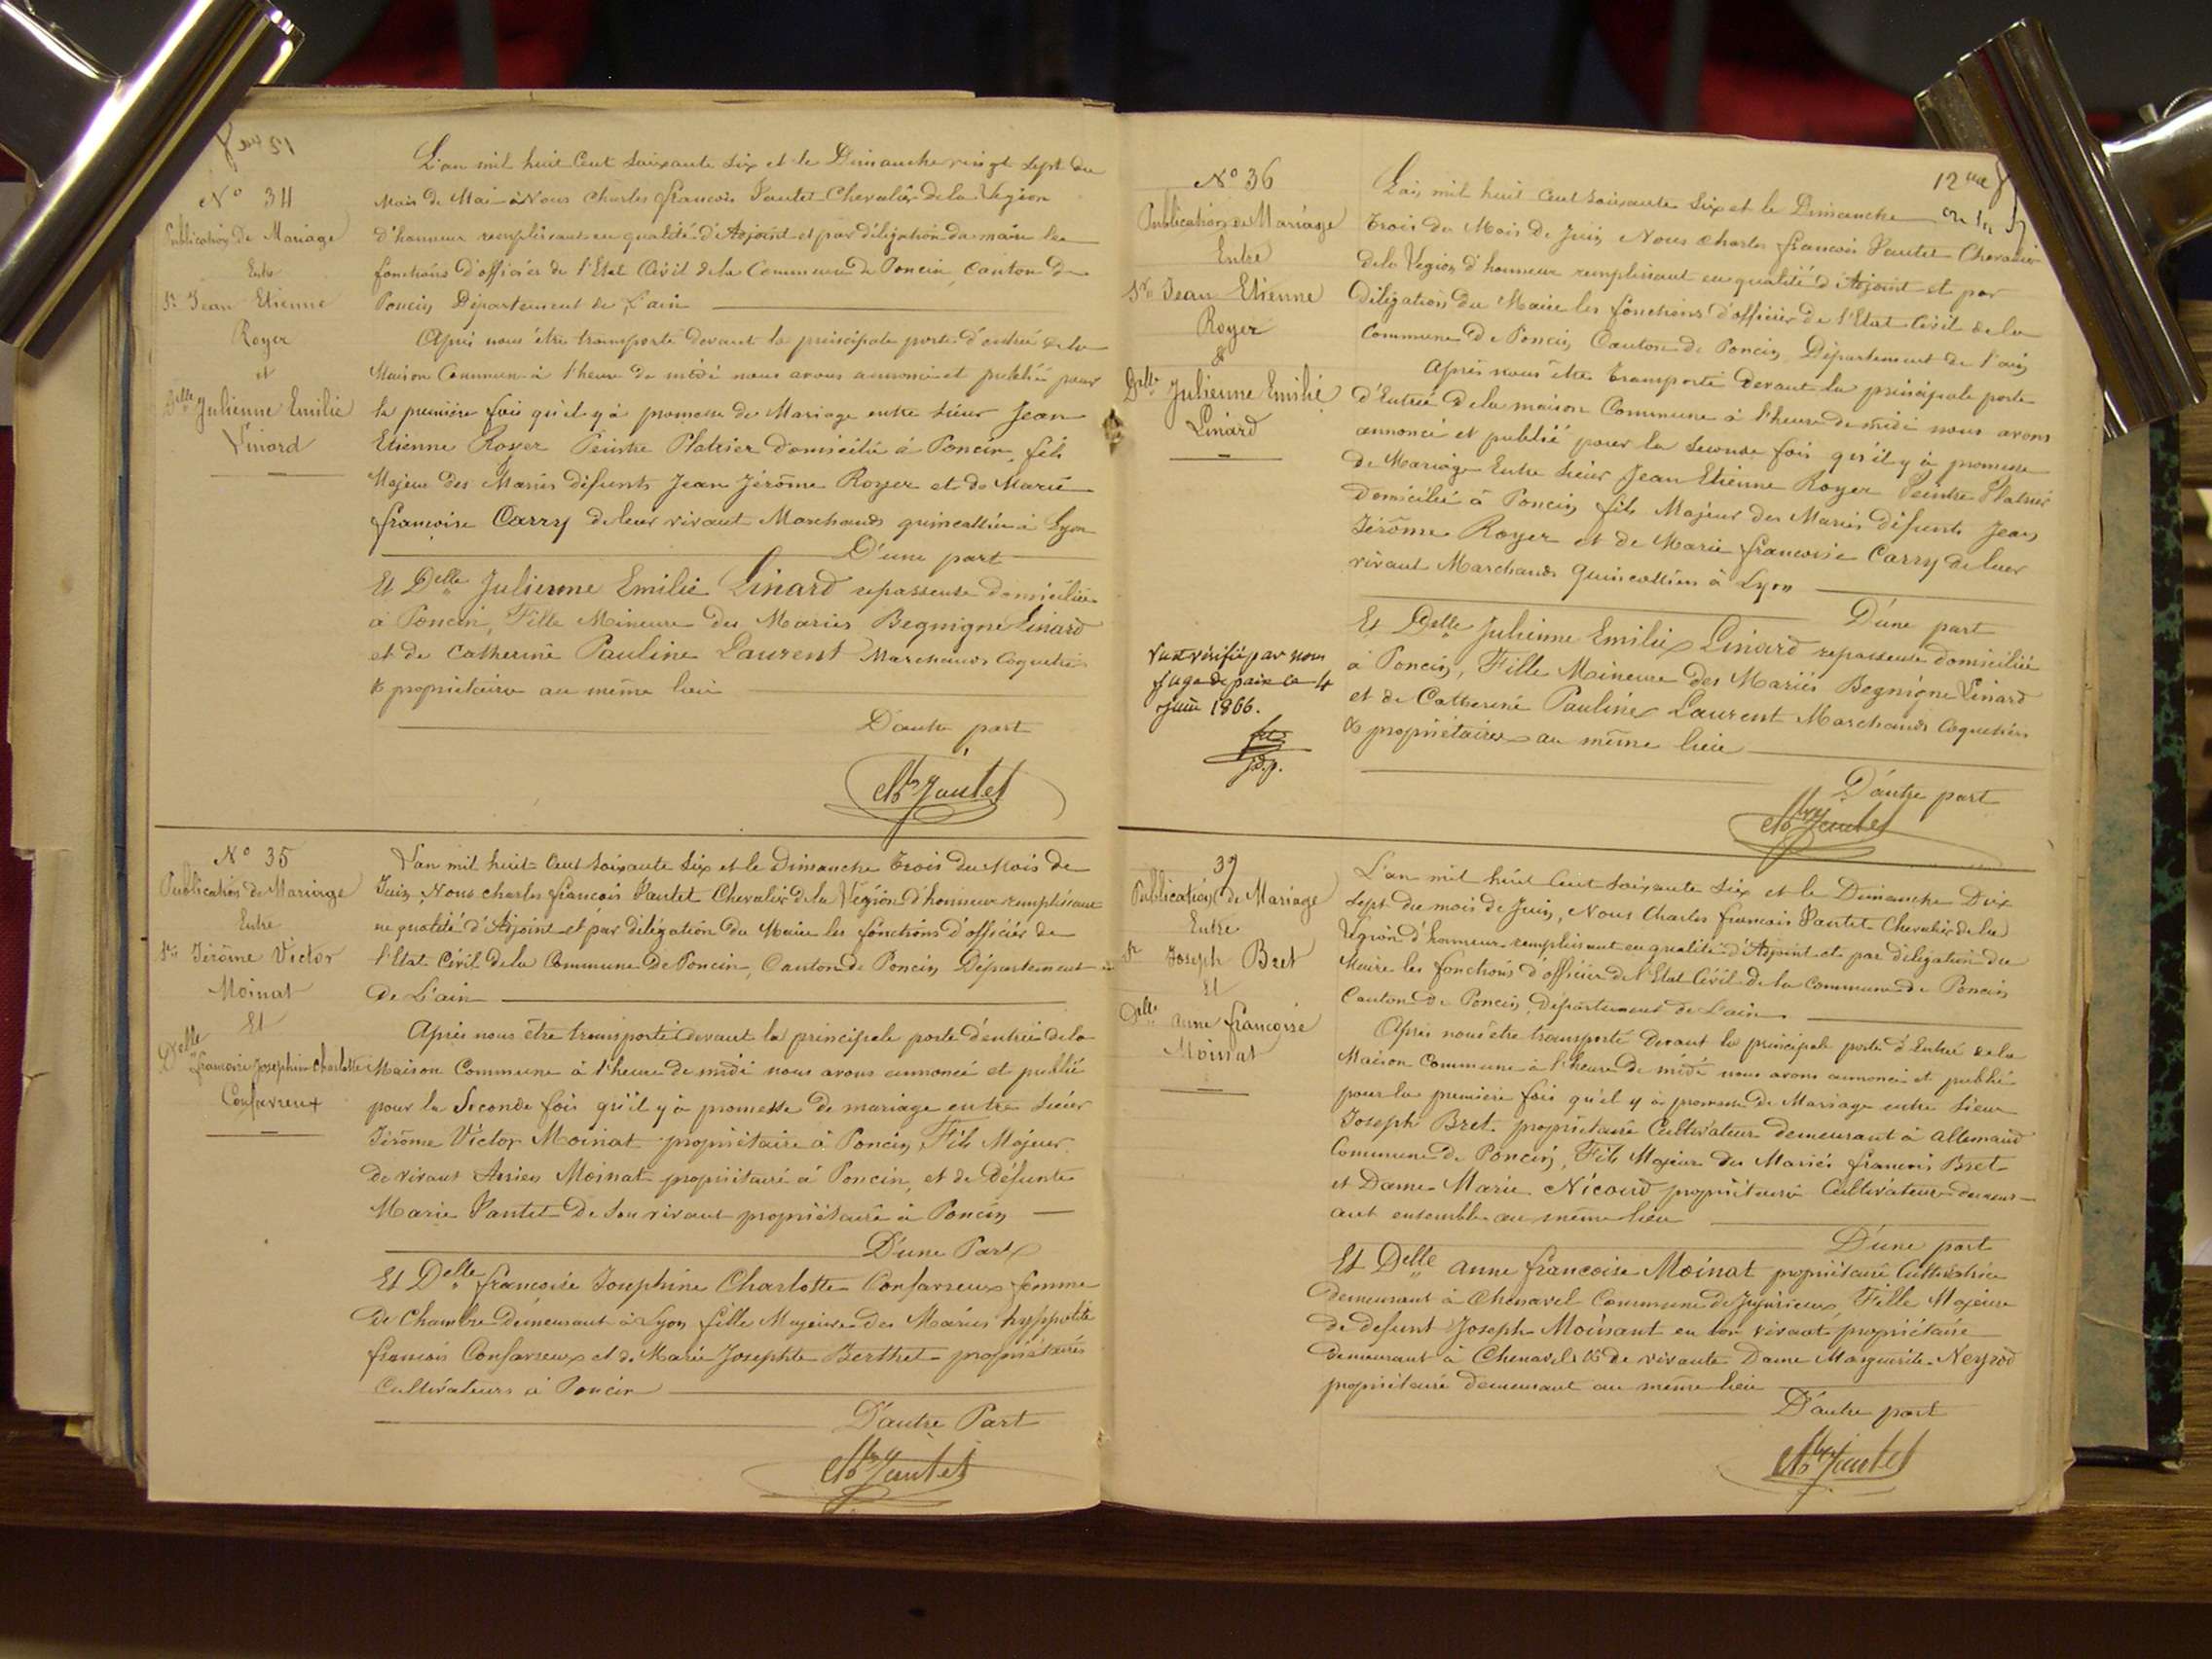 N° 34
Publication de Mariage
Entre
Sr Jean Etienne
Royer
et
Delle Julienne Emilie
Linard
L'an mil huit Cent Soixante Six et le Dimanche vingt Sept du
Mois de Mai Nous Charles françois Pautet Chevalier de la Légion
d'honneur remplissant en qualité d'Adjoint et par déligation du maire les
fonctions d'officier de l'Etat Civil de la Commune de Poncin, Canton de
Poncin Département de L'ain
Après nous être transporté devant la principale porte d'entrée de la
Maison Commune à l'heure de midi nous avons annoncé et publié pour
la première fois qu'il y à promesse de Mariage entre Sieur Jean
Etienne Royer Peintre Platrier domicilié à Poncin, fils
Majeur des Mariés défunts Jean Jérôme Royer et de Marie
françoise Carry de leur vivant Marchands quincalliers à Lyon
D'une part
Et Delle Julienne Emilie Linard repasseuse domiciliée
à Poncin, Fille Mineure des Mariés Begnigne Linard
et de Catherine Pauline Laurent Marchands Coquetiers
& propriétaires au même lieu
D'autre part
Chles Pautet
N° 35
Publication de Mariage
Entre
Sr Jérôme Victor
Moinat
Et
Delle
françoise Josephine Charlotte
Confavreux
L'an mil huit Cent Soixante Six et le Dimanche Trois du Mois de
Juin, Nous Charles françois Pautet Chevalier de la Légion d'honneur remplissant
en qualité d'Adjoint et par déligation du Maire les fonctions d'officier de
l'Etat Civil de la Commune De Poncin, Canton de Poncin Département
De L'ain
Après nous être transporté devant la principale porte d'entrée de la
Maison Commune à l'heure de midi nous avons annoncé et publié
pour la Seconde fois qu'il y à promesse de mariage entre Sieur
Jérôme Victor Moinat propriétaire à Poncin, Fils Majeur
de vivant Moinat propriétaire à Poncin, et de Défunte
Marie Pautet De Son vivant propriétaire à Poncin
D'une Part
Et Delle françoise Josephine Charlotte Confavreux femme
De Chambre Demeurant à Lyon fille Majeure des Mariés hyppolite
françois Confavreux et de Marie Josephte Berthet propriétaires
Cultivateurs à Poncin
D'autre Part
Chles Pautet
12
N° 36
Publication de Mariage
Entre
Sr Jean Etienne
Royer
&
Delle Julienne Emilie
Linard
L'an mil huit Cent Soixante Six et le Dimanche
Trois du Mois de Juin Nous Charles françois Pautet Chevalier
de la Légion d'honneur remplissant en qualité d'Adjoint et par
Déligation du Maire les fonctions d'officier de l'Etat Civil de la
Commune De Poncin Canton de Poncin, Département de l'ain
Après nous être transporté devant la principale porte
d'Entrée de la maison Commune à l'heure de midi nous avons
annoncé et publié pour la Seconde fois qu'il y à promesse
de Mariage Entre Sieur Jean Etienne Royer Peintre Platrier
Domicilié à Poncin fils Majeur des Mariés défunts Jean
Jérôme Royer et de Marie françoise Carry de leur
vivant Marchands Quincalliers à Lyon
D'une part
Et Delle Julienne Emilie Linard repasseuse domiciliée
à Poncin, Fille Mineure des Mariés Begnigne Linard
et de Catherine Pauline Laurent Marchands Coquetiers
& propriétaires au même lieu
D'autre part
Chles Pautet
Vu et vérifié par nous
juge de paix ce 4
juin 1866.
j.d.p.
37
Publication de Mariage
Entre
Sr Joseph Bret
Et
Delle anne françoise
Moinat
L'an mil huit Cent Soixante Six et le Dimanche Dix
Sept du mois de Juin, Nous Charles francois Pautet Chevalier de la
Légion d'honneur remplissant en qualité d'Adjoint et par déligation du
Maire les fonctions d'officier de l'Etat Civil de la Commune de Poncin
Canton de Poncin, Département de L'ain
Après nous être transporté devant la principale porte d'Entrée de la
Maison Commune à l'heure de midi nous avons annoncé et publié
pour la premiere fois qu'il y à promesse de Mariage entre Sieur
Joseph Bret propriétaire Cultivateur demeurant à allemand
Commune de Poncin, Fils Majeur des Mariés francois Bret
et Dame Marie Nicoud propriétaires Cultivateurs demeur-
ant ensemble au même lieu
D'une part
Et Delle anne françoise Moinat propriétaire Cultivatrice
demeurant à Chenavel Commune de Jujurieux, Fille Majeure
de defunt Joseph Moinant en son vivant propriétaire
demeurant à Chenavel & de vivante Dame Marguerite Neyrod
propriétaire demeurant au même lieu
D'autre part
Chles Pautet